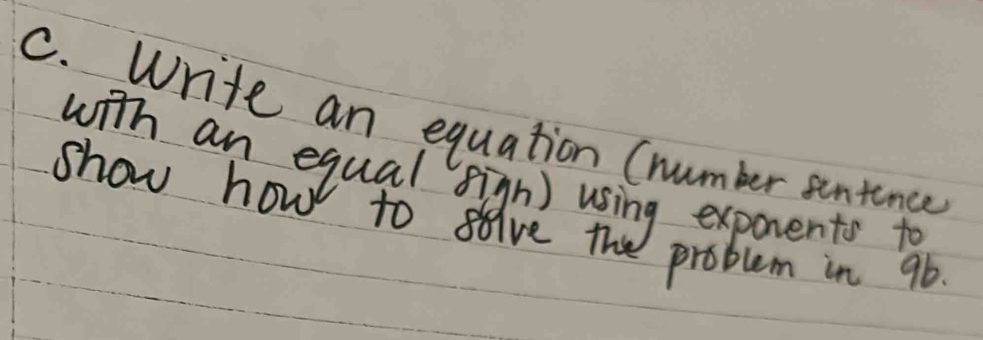 C. Write an equation (number sentence
with an equal sign) using exponents to
show how to solve the problem in 9b.